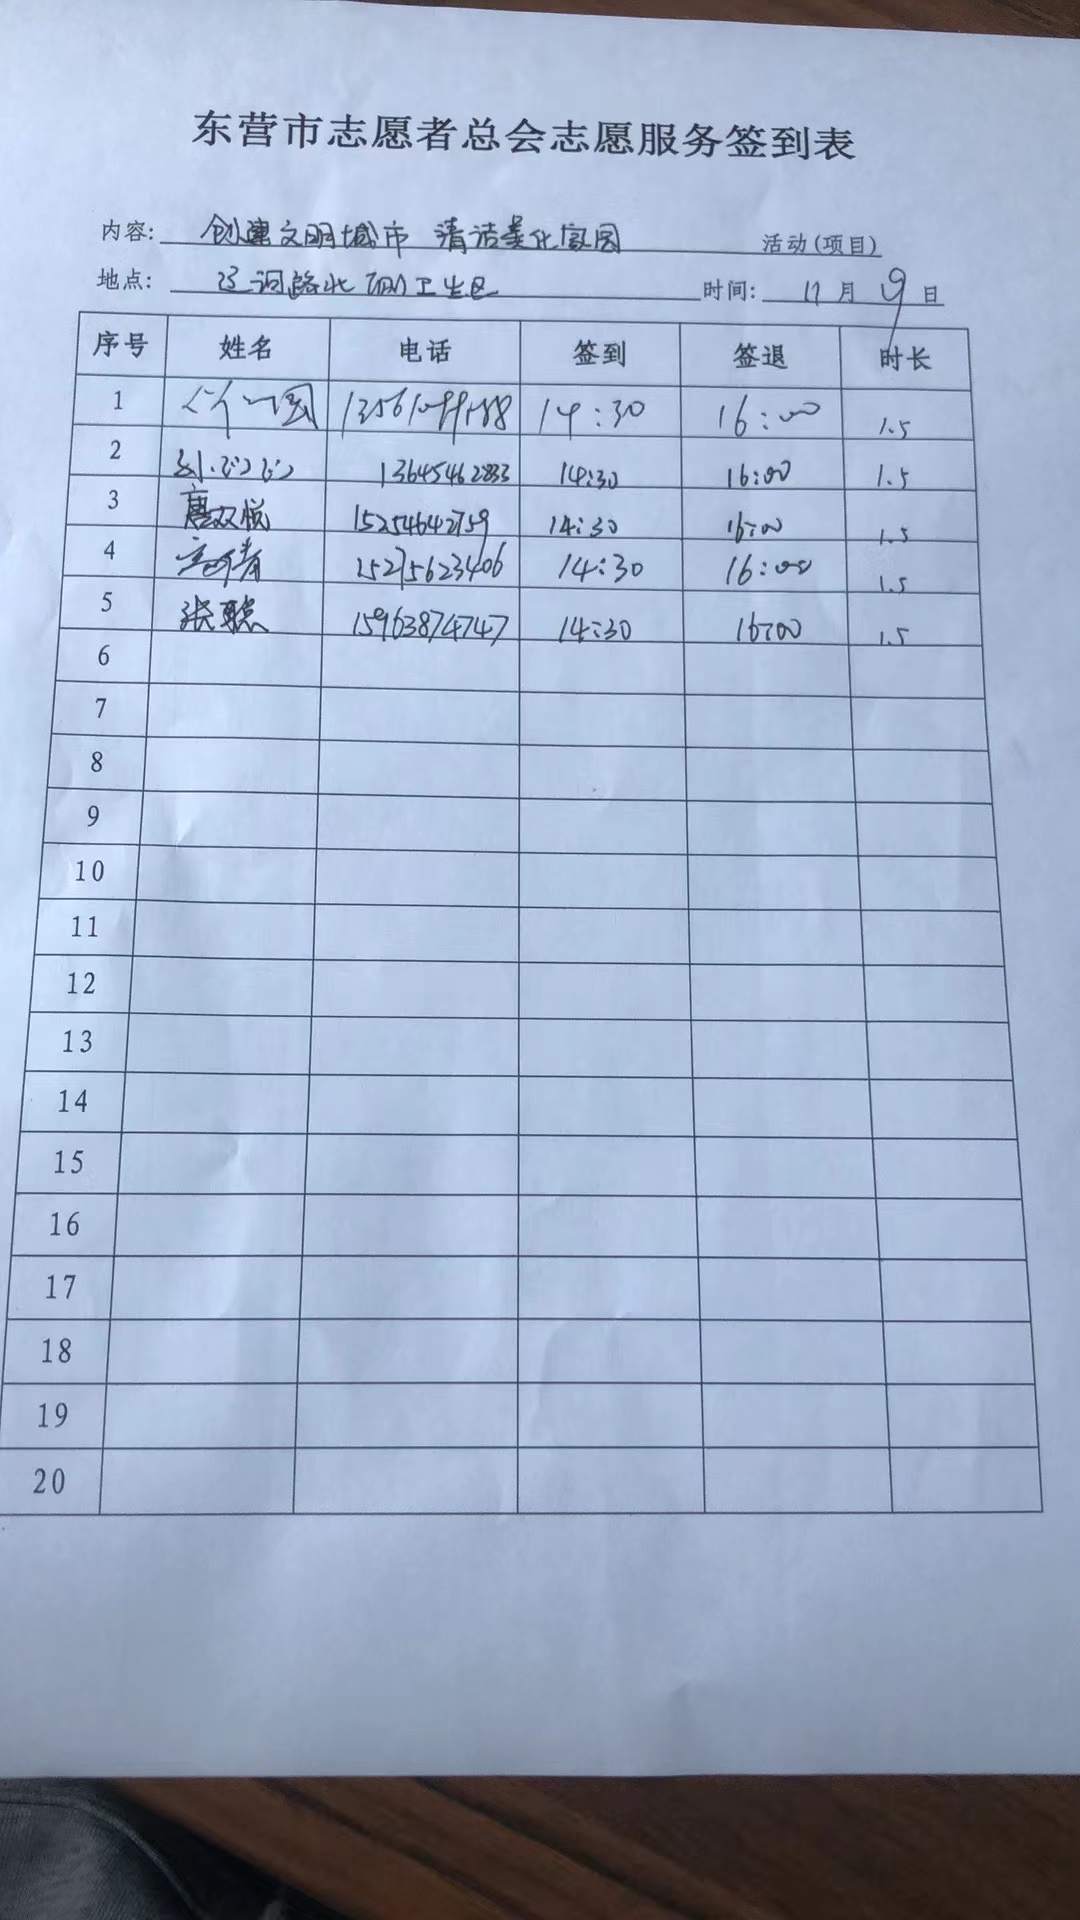 东营市志愿者总会志愿服务签到表
内容: 创建文明城市 清洁美化家园 活动(项目)
地点: 辽河路北 卫生区 时间: 11月9日
序号 姓名 电话 签到 签退 时长
1 14:30 16:00 1.5
2 13645462833 14:30 16:00 1.5
3 唐双悦 15254642759 14:30 16:00 1.5
4 15275623406 14:30 16:00 1.5
5 张聪 15963874747 14:30 16:00 1.5
6
7
8
9
10
11
12
13
14
15
16
17
18
19
20